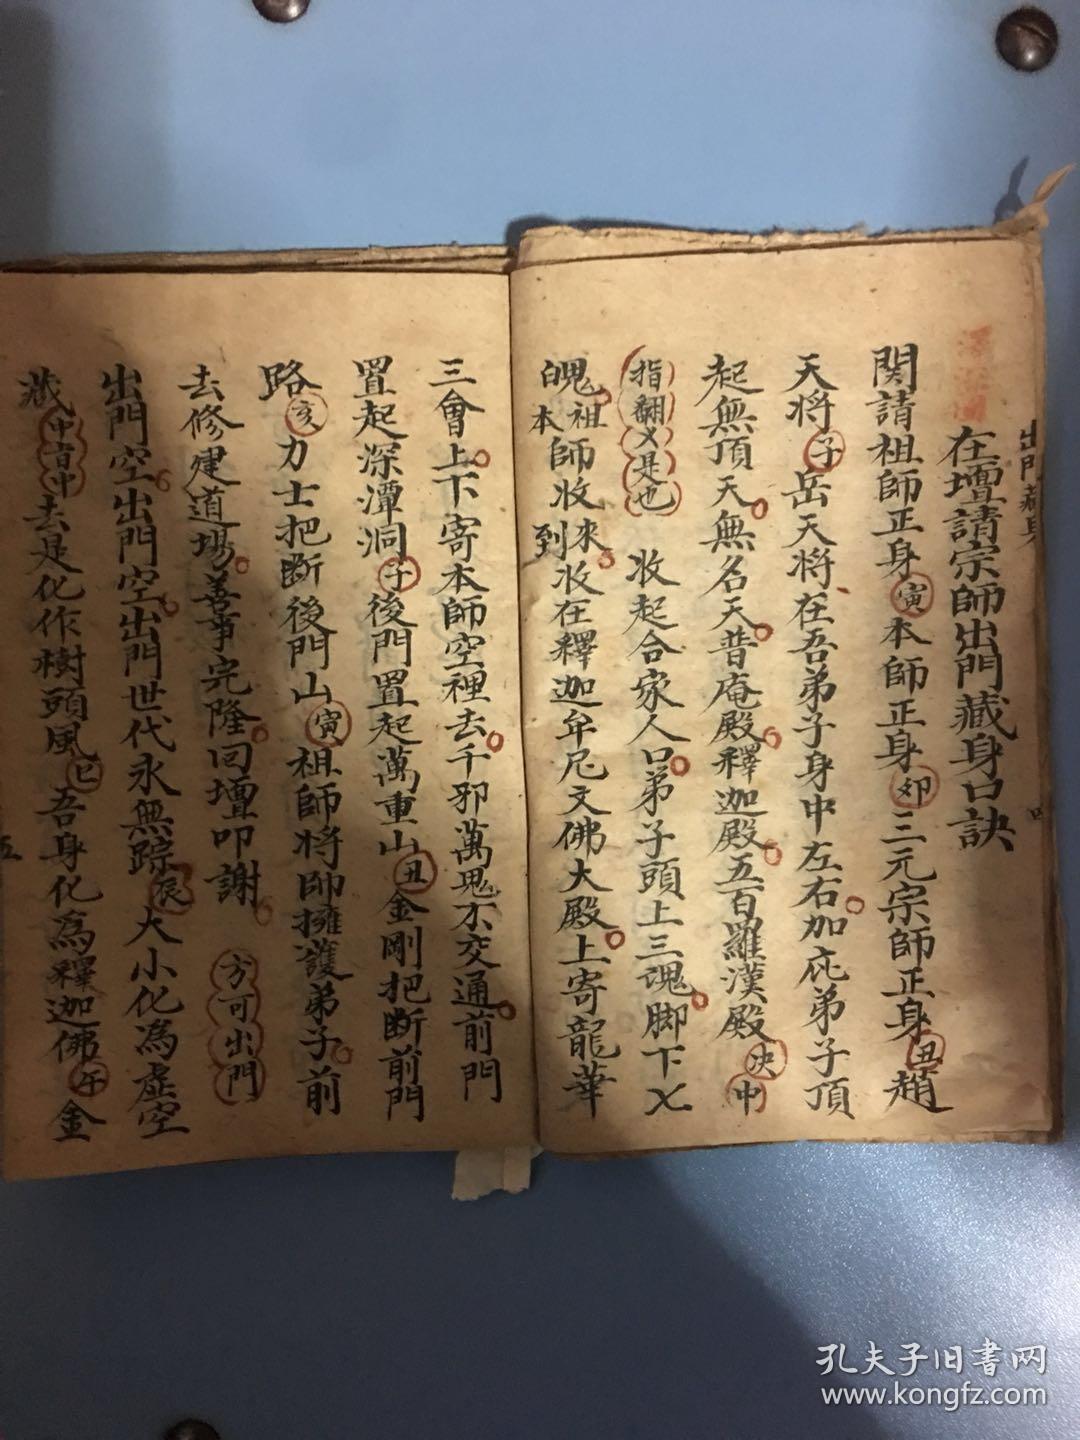 出門藏身
四
在壇請宗師出門藏身口訣
関請祖師正身寅本師正身卯三元宗師正身丑趙
天将子岳天将在吾弟子身中左右加庇弟子頂
起無頂天無名天普庵殿釋迦殿五百羅漢殿決中
指翻乂是也 收起合家人口弟子頭上三魂脚下七
魄祖本師收來到收在釋迦牟尼文佛大殿上寄龍華
三會上下寄本師空裡去千邪萬鬼不交通前門
置起深潭洞子後門置起萬重山丑金剛把断前門
路亥力士把断後門山寅祖師将帥擁護弟子前
去修建道場善事完隆回壇叩謝 方可出門
出門空出門空出門世代永無踪辰大小化為虚空
藏中盲中去是化作樹頭風巳吾身化為釋迦佛午金
五
孔夫子旧書网
www.kongfz.com